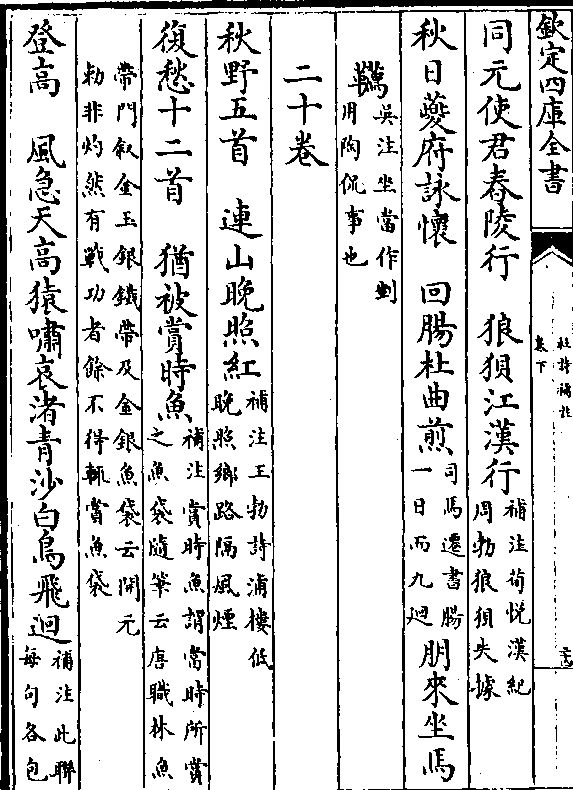 欽定四庫全書
杜詩補註
卷下
同元使君舂陵行 狼狽江漢行補注荀悅漢紀
周勃狼狽失據
秋日夔府詠懷 回腸杜曲煎司馬遷書腸
一日而九迴朋來坐馬
韉吳注坐當作剉
用陶侃事也
二十卷
秋野五首 連山晚照紅補注王勃詩浦樓低
晚照鄉路隔風煙
復愁十二首 猶被賞時魚補注賞時魚謂當時所賞
之魚袋隨筆云唐職林魚
帶門叙金玉銀鐵帶及金銀魚袋云開元
勅非灼然有戰功者餘不得輒賞魚袋
登高 風急天高猿嘯哀渚青沙白鳥飛迴補注此聯
每句各包